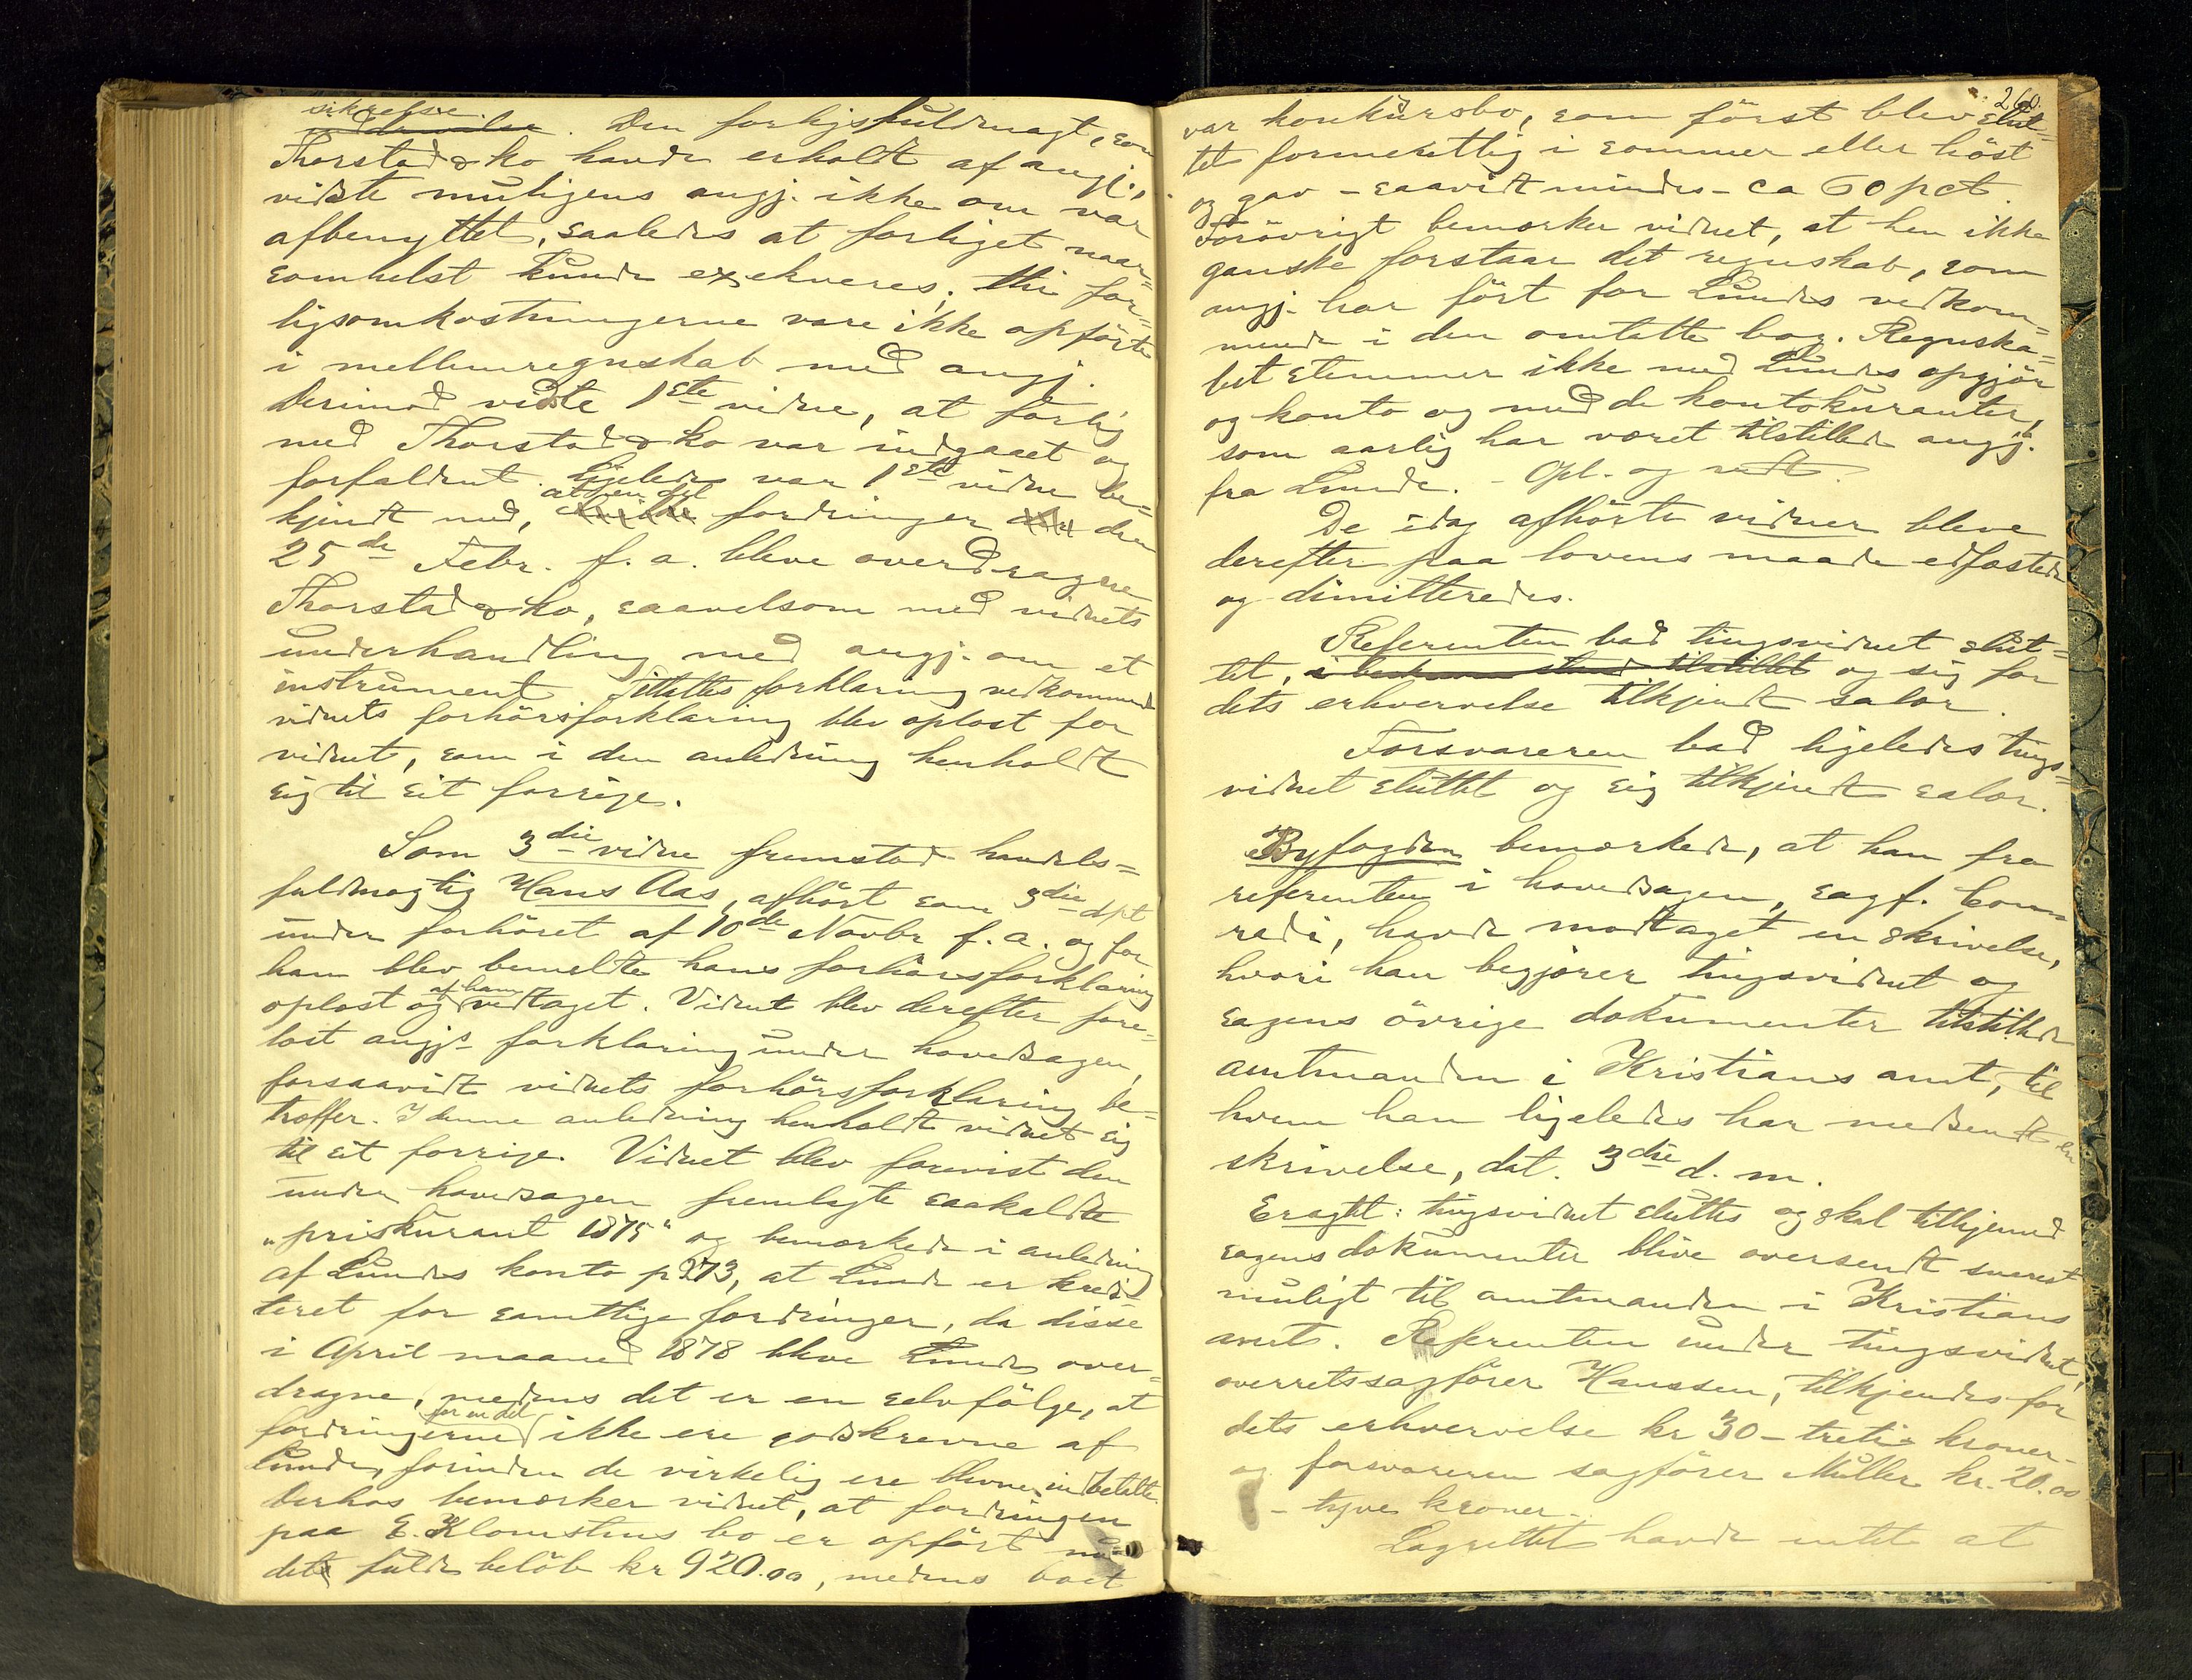 sikrelse
. Den forligsfuldmagt, som
Thorstad & ko havde erholdt af angj.,
vidste muligens angj. ikke om var
afbenyttet, saaledes at forliget naar=
somhelst kunde exekveres; thi for=
ligsomkostningerne vare ikke opförte
i mellemregnskab med angj.
Derimod vidste 1ste vidne, at forlig
med Thorstad & ko var indgaaet og
forfaldent. Ligeledes var 1ste vidne be=
kjendt med, at en del fordringer den
25de Febr. f. a. bleve overdragne
Thorstad & ko, saavelsom med vidnets
underhandling med angj. om et
instrument. Tiltaltes forklaring vedkommende
vidnets forhörsforklaring blev oplæst for
vidnet, som i den anledning henholdt
sig til sit forrige.
Som 3die vidne fremstod handels=
fuldmægtig Hans Aas, afhört som 3die dpt
under forhöret af 10de Novbr f. a. og for
ham blev bemeldte hans forhörsforklaring
oplæst og af ham vedtaget. Vidnet blev derefter fore=
læst angjs forklaring under hovedsagen,
forsaavidt vidnets forhörsforklaring be=
træffer. I denne anledning henholdt vidnet sig
til sit forrige. Vidnet blev forevist den
under hovedsagen fremlagte saakaldte
"priskurant 1875" og bemærkede i anledning
af Lundes konto p 273, at Lunde er kredi=
teret for samtlige fordringer, da disse
i April maaned 1878 bleve Lunde over=
dragne, medens det er en selvfölge, at
fordringerne for en del ikke ere godskrevne af
Lunde, forinden de virkelig ere blevne indbetalte.
Derhos bemærker vidnet, at fordringen
paa E. Klomstens bo er opfört med
det fulde belöb kr 920.00, medens boet
260.
var konkursbo, som först blev slut=
tet formentlig i sommer eller höst
og gav - saavidt mindes - ca 60 pct.
Forövrigt bemærker vidnet, at han ikke
ganske forstaar det regnskab, som
angj. har fört for Lundes vedkom=
mende i den omtalte bog. Regnska=
bet stemmer ikke med Lundes opgjör
og konto og med de kontokuranter,
som aarlig har været tilstillede angj.
fra Lunde. - Opl. og vedt.
De idag afhörte vidner bleve
derefter paa lovens maade edfæstede
og dimitteredes.
Referenten bad tingsvidnet slut=
tet, og sig for
dets erhvervelse tilkjendt salær.
Forsvareren bad ligeledes tings=
vidnet sluttet og sig tilkjendt salær.
Byfogden bemærkede, at han fra
referenten i hovedsagen, sagf. Con=
radi, havde modtaget en skrivelse,
hvori han begjærer tingsvidnet og
sagens övrige dokumenter tilstillede
amtmanden i Kristians amt, til
hvem han ligeledes har medsendt en
skrivelse, dat. 3die d. m.
Eragtet: tingsvidnet sluttes og skal tilligemed
sagens dokumenter blive oversendt snarest
muligt til amtmanden i Kristians
amt. Referenten under tingsvidnet,
overretssagförer Hanssen, tilkjendes for
dets erhvervelse kr 30 - treti - kroner -
og forsvareren sagförer Müller kr. 20.00
- tyve kroner -.
Lagrettet havde intet at